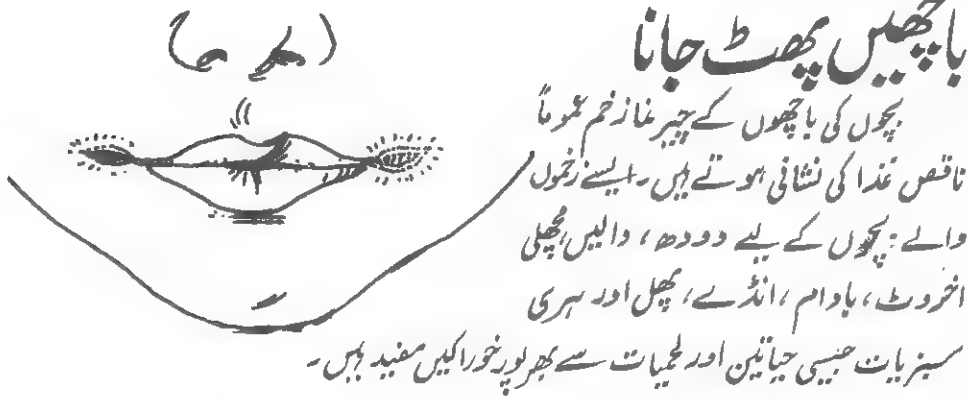 باچھیں پھٹ جانا
بچوں کی باچھوں کے چیر نما زخم عموماً
ناقص غذا کی نشانی ہوتے ہیں۔ ایسے زخموں
والے بچوں کے لیے دودھ، دالیں، مچھلی
اخروٹ، بادام، انڈے، پھل اور ہری
سبزیات جیسی حیاتین اور لحمیات سے بھرپور خوراکیں مفید ہیں۔